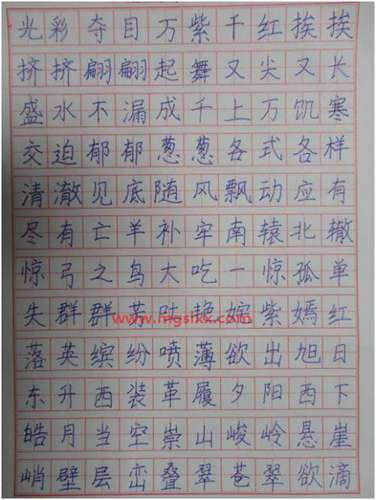 光彩夺目万紫千红挨挨
挤挤翩翩起舞又尖又长
盛水不漏成千上万饥寒
交迫郁郁葱葱各式各样
清澈见底随风飘动应有
尽有亡羊补牢南辕北辙
惊弓之鸟大吃一惊孤单
失群群芳吐艳嫁紫嫣红
www.mgslxx.com
落英缤纷喷薄欲出旭日
东升西装革履夕阳西下
皓月当空崇山峻岭悬崖
峭壁层峦叠翠苍翠欲滴